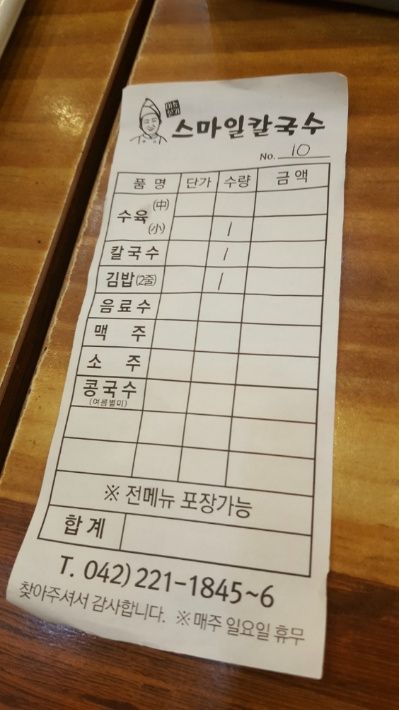 스마일칼국수
No. 10
품 명 단가 수량 금 액
수육 (中)
(小) /
칼국수 /
김밥(2줄) /
음료수
맥 주
소 주
콩국수
(여름별미)
※ 전메뉴 포장가능
합 계
T. 042) 221-1845~6
찾아주셔서 감사합니다. ※ 매주 일요일 휴무